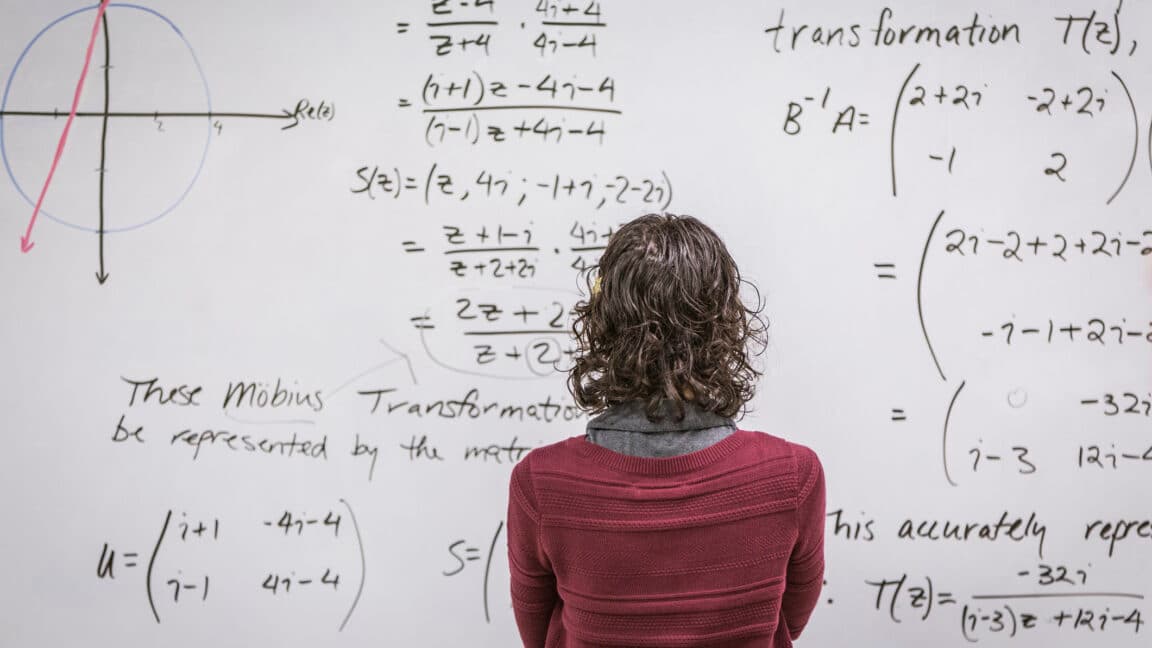 Re(z)
2 4
= z-4/z+4 · 4i+4/4i-4
= (i+1)z-4i-4/(i-1)z+4i-4
S(z)=(z, 4i; -1+i, -2-2i)
= z+1-i/z+2+2i · 4i+
= 2z+2/z+2+
These Möbius Transformation
be represented by the matr
u= (i+1 -4i-4
i-1 4i-4)
S=(
transformation T(z),
B⁻¹A= (2+2i -2+2i
-1 2)
= (2i-2+2+2i-2
-i-1+2i-2
= (0 -32i
i-3 12i-4
This accurately repre
: T(z)= -32i/(i-3)z+12i-4